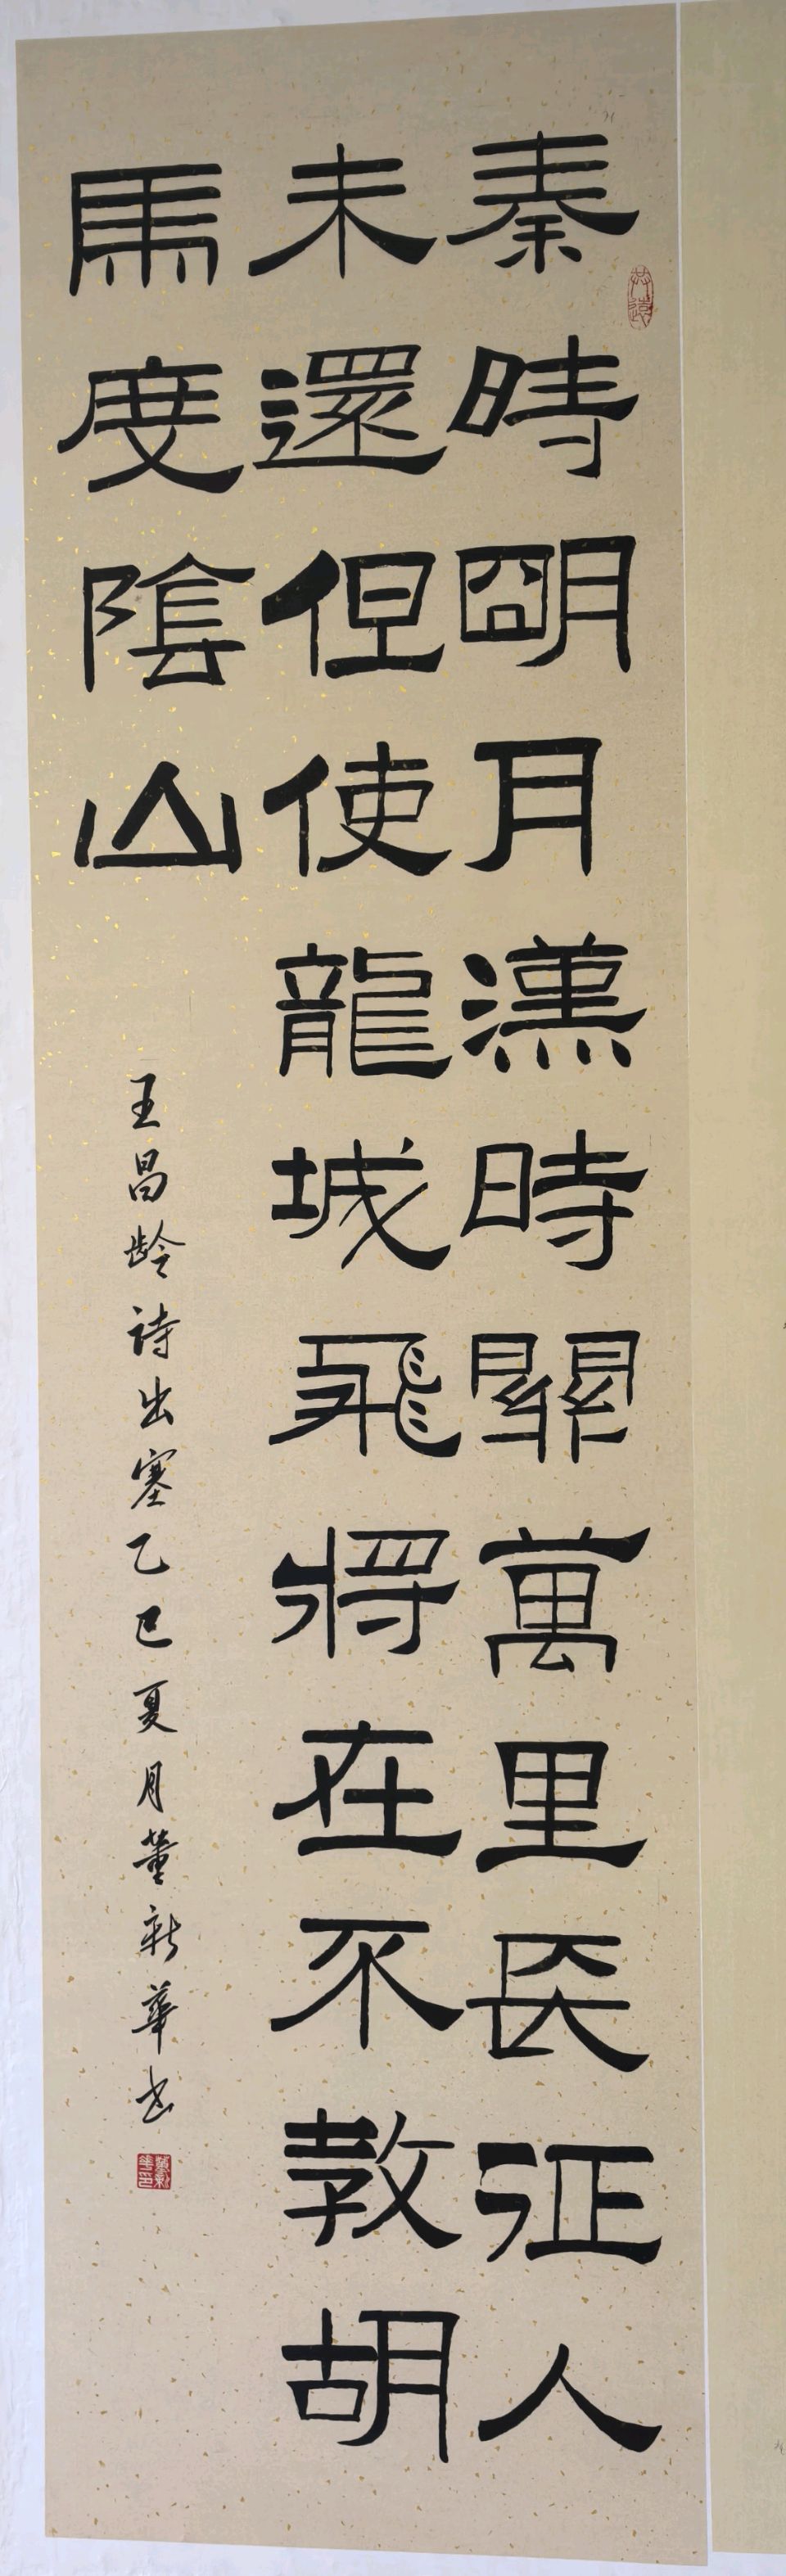 秦時明月漢時關萬里長征人
未還但使龍城飛將在不教胡
馬度陰山
王昌龄詩出塞乙巳夏月董新華书